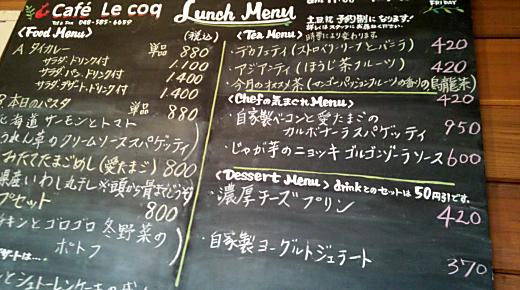 Café Le coq
Tel & Fax 048-585-6659
Lunch Menu
FRIDAY
土日祝 予約制になります!
詳しくはスタッフにお尋ねください。
<Food Menu>
(税込)
A タイカレー 単品 880
サラダ・ドリンク付 1,100
サラダ・パン・ドリンク付 1,400
サラダ・デザート・ドリンク付 1,400
B 本日のパスタ 単品 880
北海道 サーモンとトマト
うれん草のクリームソーススパゲッティ
たてたまごめし(愛たまご) 800
県産いわし丸干し※頭から骨までどうぞ
プセット 800
チキンとゴロゴロ 冬野菜の
ポトフ
デザートは…
とシュトーレンケーキの
<Tea Menu>
時季により変わります。
・デカフェティ(ストロベリーリーフとバニラ) 420
・アジアンティ(ほうじ茶フルーツ) 420
・今月のオススメ茶(マンゴーパッションフルーツの香りの烏龍茶)
420
<Chefの気まぐれMenu>
・自家製ベーコンと愛たまごの
カルボナーラスパゲッティ 950
・じゃが芋のニョッキ ゴルゴンゾーラソース 600
<Dessert Menu> drinkとのセットは50円引です。
・濃厚チーズプリン
420
・自家製ヨーグルトジェラート
370